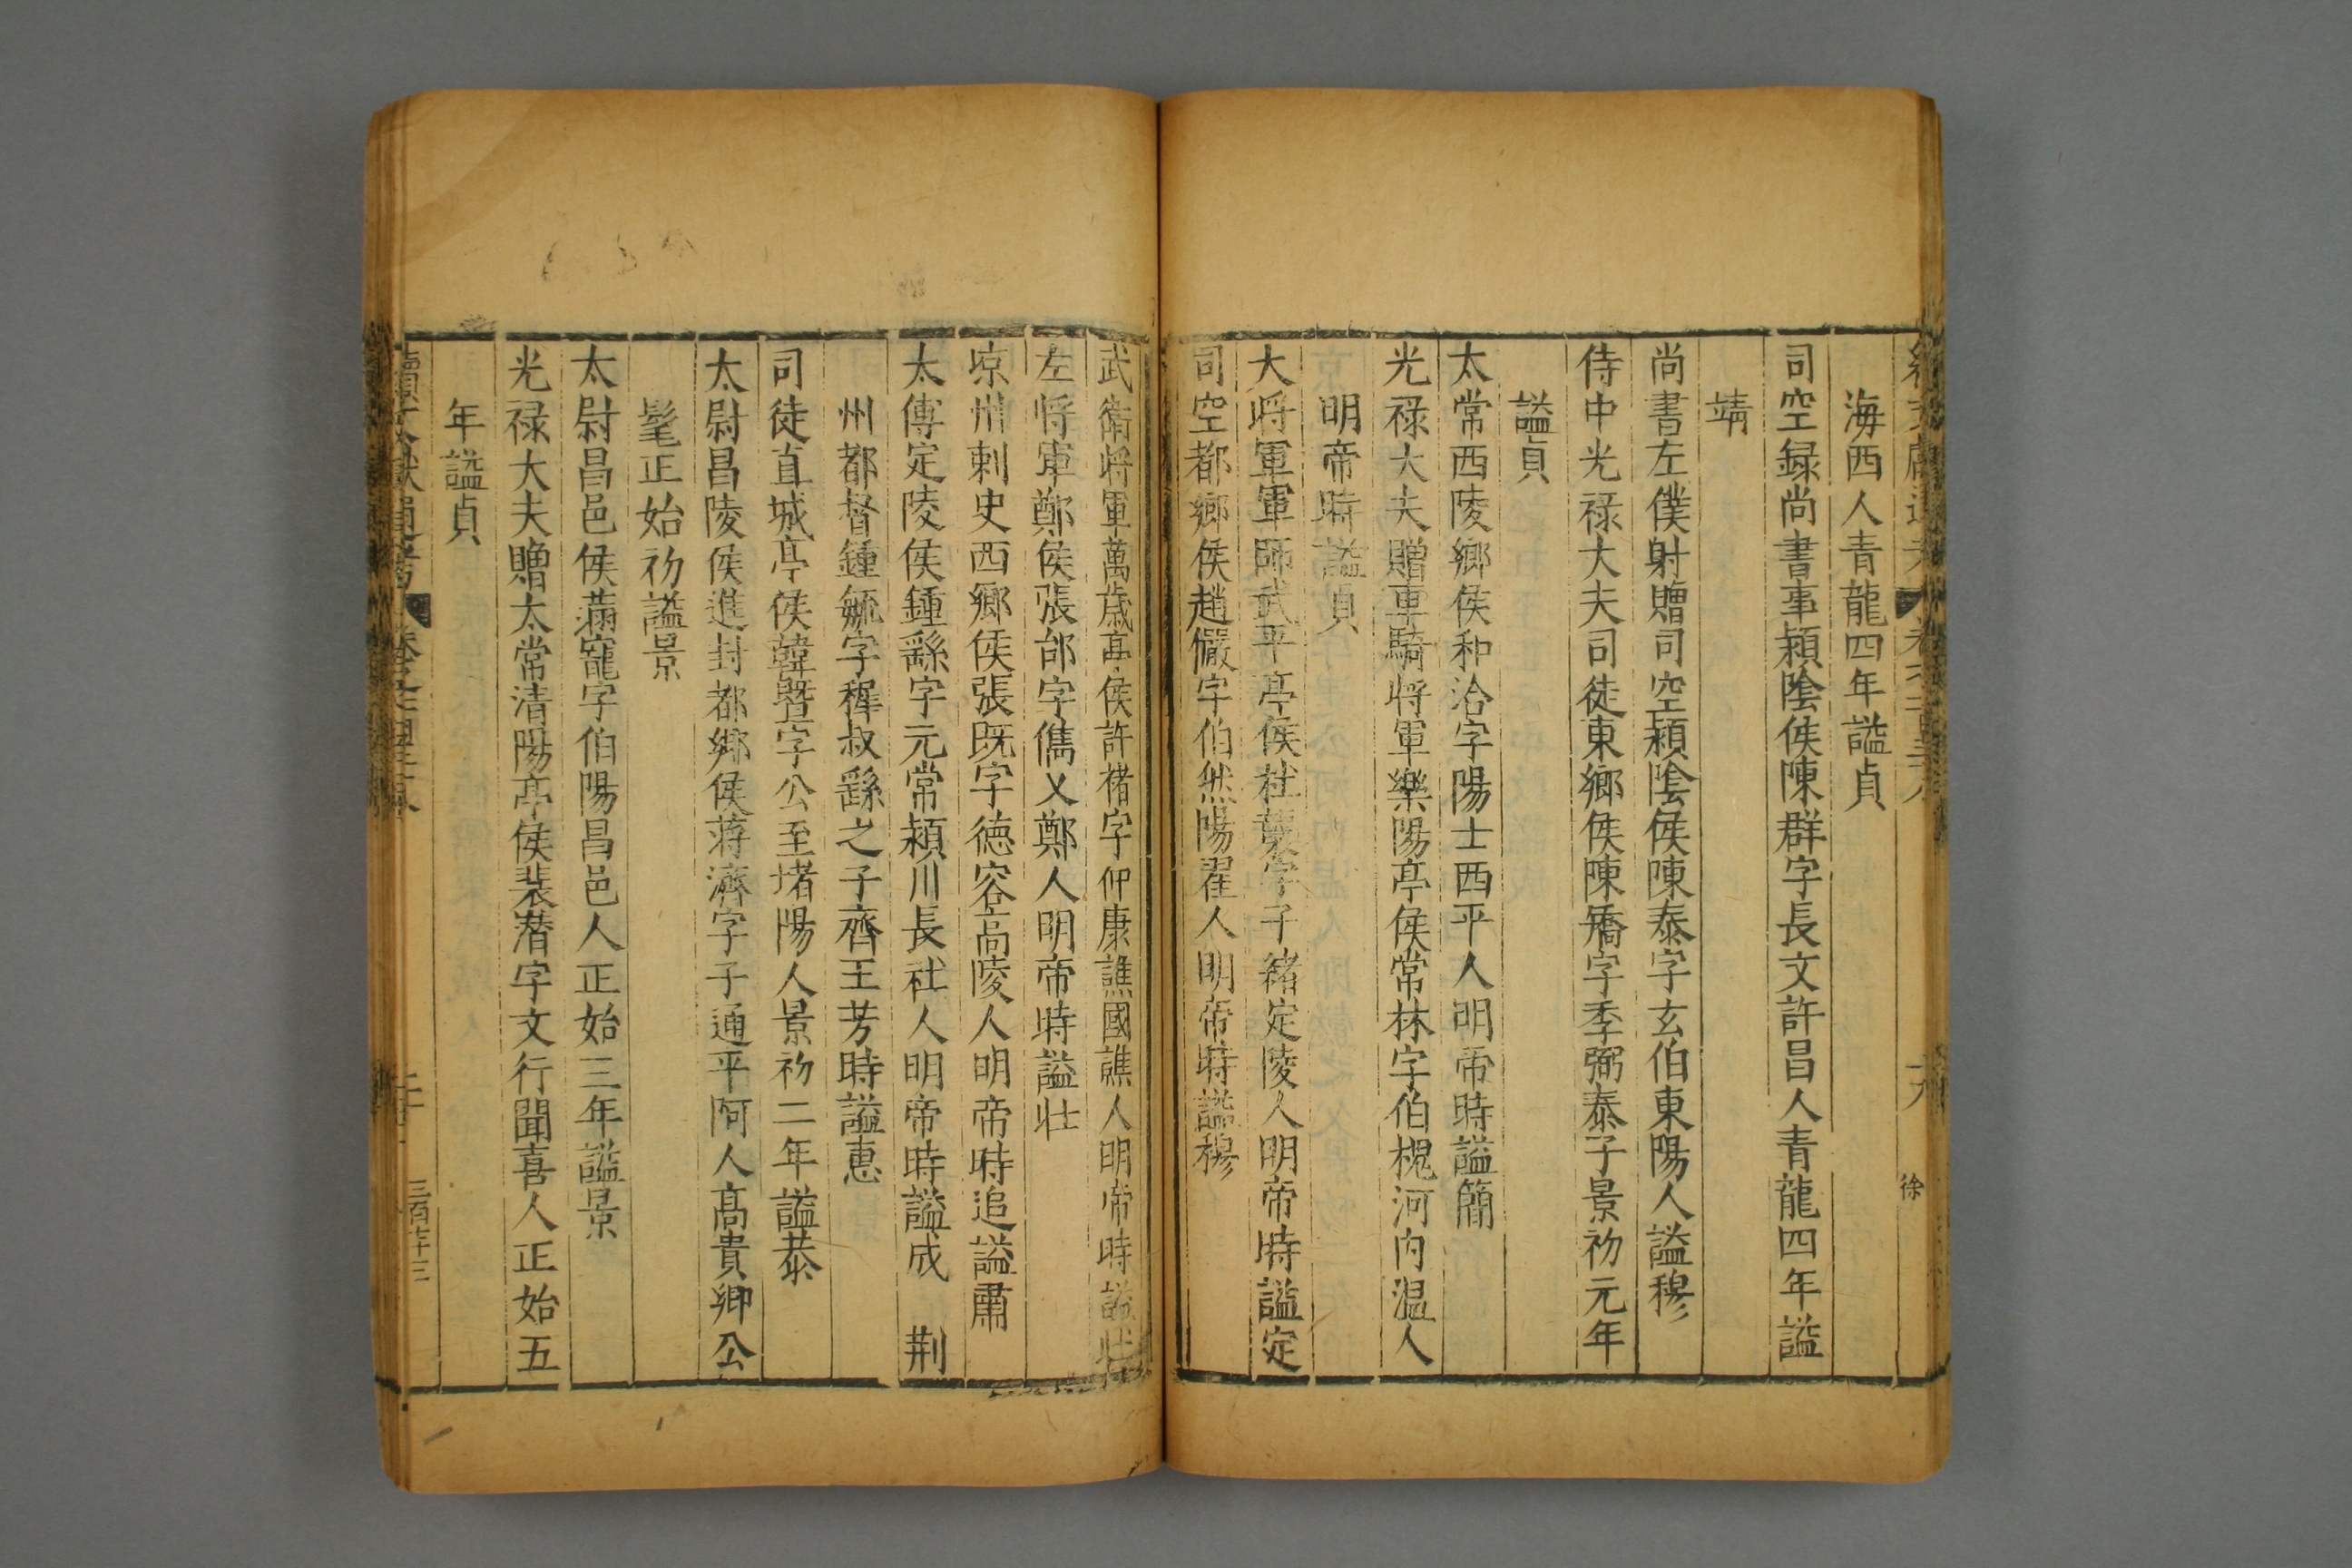 海西人青龍四年謚貞
司空録尚書事潁陰侯陳群字長文許昌人青龍四年謚
靖
尚書左僕射贈司空潁陰侯陳泰字玄伯東陽人謚穆
侍中光祿大夫司徒東鄉侯陳矯字季弼泰子景初元年
謚貞
太常西陵鄉侯和洽字陽士西平人明帝時謚簡
光祿大夫贈車騎將軍樂陽亭侯常林字伯槐河内溫人
明帝時謚貞
大將軍軍師武平亭侯杜襲字子緒定陵人明帝時謚定
司空都鄉侯趙儼字伯然陽翟人明帝時謚穆
武衛將軍萬歲亭侯許褚字仲康譙國譙人明帝時謚壯
左將軍鄭侯張郃字儁乂鄭人明帝時謚壯
凉州刺史西鄉侯張既字德容高陵人明帝時追謚肅
太傅定陵侯鍾繇字元常潁川長社人明帝時謚成 荆
州都督鍾毓字穉叔繇之子齊王芳時謚惠
司徒直城亭侯韓暨字公至堵陽人景初二年謚恭
太尉昌陵侯進封都鄉侯蔣濟字子通平阿人高貴卿公
髦正始初謚景
太尉昌邑侯滿寵字伯陽昌邑人正始三年謚景
光祿大夫贈太常清陽亭侯裴潛字文行聞喜人正始五
年謚貞
續文獻通考
徐